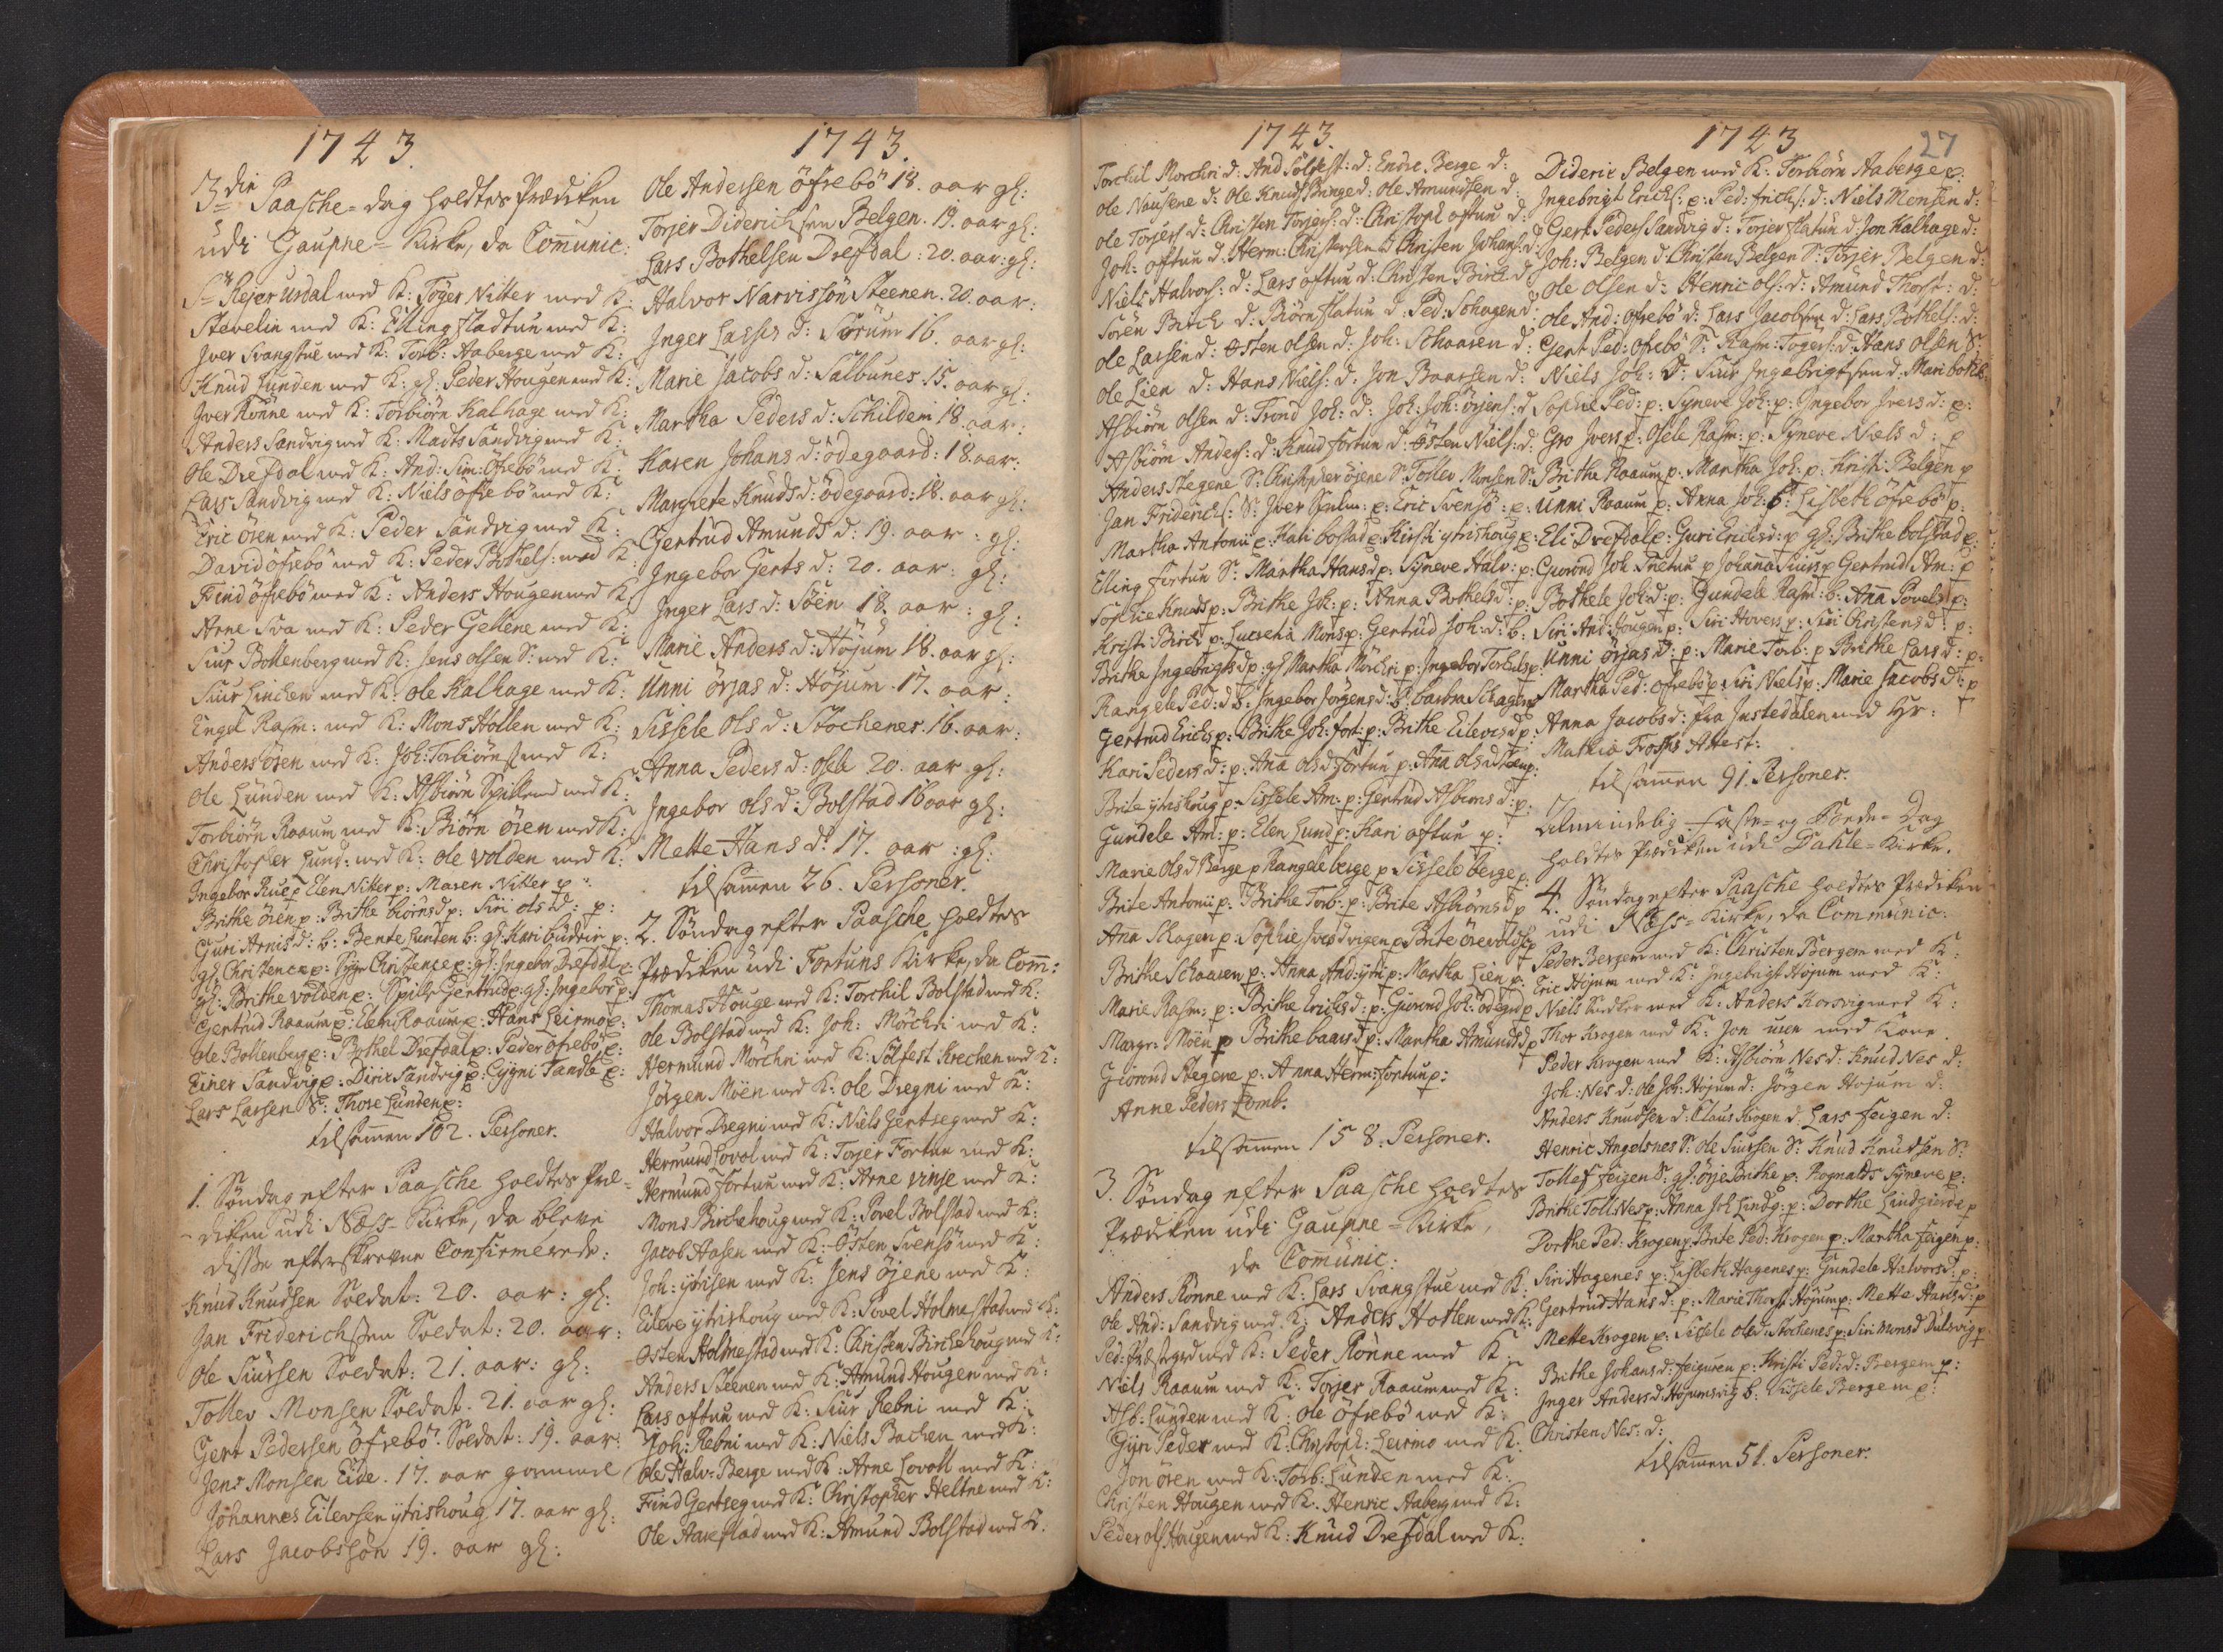 1743.
3die Paasche-dag holdtes Prædiken
udi Gaupne-Kirke, da Comunic:
Sr Rejer Urdal med K: Töger Nitter med K:
Stevelin med K: Elling fladtun med K:
Jver Svangstue med K: Torb: Aaberge med K:
Knud Lunden med K: gl: Peder Hougen med K:
Jver Rönne med K: Torbiörn Kalhage med K:
Anders Sandvig med K: Madts Sandvig med K:
Ole Drefdal med K: And: Sim: Öfrebö med K:
Lars Sandvig med K: Niels öfrebö med K:
Eric ören med K: Peder Sandvig med K:
David öfrebö med K: Peder Bothels: med K:
Find öfrebö med K: Anders Hougen med K:
Arne Sva med K: Peder Geilene med K:
Siur Bollenberg med K: Jens olsen S: med K:
Siur Linchen med K: ole Kalhage med K:
Engel Rasm: med K: Mons Hollen med K:
Anders ören med K: Joh: Torbiörns: med K:
Ole Lünden med K: Asbiörn med K:
Torbiörn Raaum med K: Biörn ören med K:
Christopher Lund: med K: ole volden med K:
Ingebor Rue p: Elen Nitter p: Maren Nitter p:
Brithe ören p: Brithe biörnsd p: Siri olsd: p:
Guri Arnisd: b: Bente Lunden b: gl: Kari p:
gl: Christence p: Christence p: gl: Ingebor Drefdal p:
gl: Brithe volden p: Gertrud p: gl: Ingebor p:
Gertrud Raaum p: Elen Raaum p: Hans Leirmo p:
Ole Bollenberg p: Bothel Drefdal p: Peder öfrebö p:
Einer Sandvig p: Diric Sandvig p: Tandle p:
Lars Larsen S: Thore Lunden p:
tilsamen 102. Personer.
1. Söndag efter Paasche holdtes Præ-
diken udi Næss-Kirke, da bleve
disse efterskrevne Confirmerede:
Knud Knudsen Soldat: 20. aar: gl:
Jan Friderichsen Soldat: 20. aar:
Ole Siursen Soldat: 21. aar: gl:
Tollev Monsen Soldat. 21. aar gl:
Gert Pedersen öfrebö. Soldat: 19. aar:
Jens Monsen Eide. 17. aar gammel
Johannes Eilevsen ytrishoug 17. aar gl:
Lars Jacobssön 19. aar gl:
1743.
Ole Andersen öfrebö 18. aar gl:
Torjer Dideric​hsen Belgen. 19. aar gl:
Lars Bothelsen Drefdal: 20. aar: gl:
Halvor Narvissön Steenen. 20. aar:
Inger Lasses d: Sörum 16. aar gl:
Marie Jacobs d: Salbunes. 15. aar gl:
Martha Peders d: Schilden 18. aar:
Karen Johans d: ödegaard: 18. aar:
Margrete Knuds d: ödegaard: 18. aar gl:
Gertrud Amunds d: 19. aar: gl:
Ingebor Gerts d: 20. aar: gl:
Inger Lars d: Söen 18. aar: gl:
Marie Anders d: Höjum 18. aar gl:
Unni örjas d: Höjum. 17. aar:
Sissele Ols d: Stochenes. 16. aar:
Anna Peders d: Osele 20. aar gl:
Ingebor ols d: Bolstad 16 aar gl:
Mette Hans d: 17. aar: gl:
tilsamen 26. Personer.
2. Söndag efter Paasche holdtes
Prædiken udi Fortuns Kirke, da Com:
Thomas Houge med K: Torchil Bolstad med K:
Ole Bolstad med K: Joh: Mörchri med K:
Hermund Mörchri med K: Sölfest Krechen med K:
Jörgen Möen med K: ole Dregni med K:
Halvor Dregni med K: Niels Gertseg med K:
Hermund Lovol med K: Torjer Fortun med K:
Hermund fortun med K: Arne vinje med K:
Mons Birchehoug med K: Povel Bolstad med K:
Jacob Aasen med K: Östen Svensö med K:
Joh: ytrisen med K: Jens öjene med K:
Eileve ytrishoug med K: Povel Holmestad med K:
Östen Holmestad med K: Christen Birchehoug med K:
Anders Steenen med K: Amund Hougen med K:
Lars oftun med K: Siur Rebni med K:
Joh: Rebni med K: Niels Bachen med K:
Ole Halv: Berge med K: Arne Lovoll med K:
Find Gertseg med K: Christopher Heltne med K:
Ole med K: Amund Bolstad med K:
1743.
Torchil Morchri d: And Sölfest: d: Endre Berge d:
Ole Nausene d: Ole Knuds Bringe d: Ole Amundsen d:
Ole Torjers: d: Christen Torjers: d: Christoph oftun d:
Joh: oftun d: Herm: Christensen d Christen Johans: d:
Niels Halvors: d: Lars oftun d: Christen Birch d:
Sören Birch d: Biörn flatun d: Ped: Schagen d:
Ole Larsen d: Östen olsen d: Joh: Schaaren d:
Ole Lien d: Hans Niels: d: Jon Baarsen d:
Asbiörn olsen d: Trond Joh: d: Joh: Joh: örjens: d
Asbiörn Anders: d: Knud fortun d: Östen Niels: d:
Anders Stegene S: Christopher öjene S: Tollev Monsen S:
Jan Friderichs: S: Jver p: Eric Svensö: p:
Martha Antonii p: Kari bolstad p: Kirsti ytrishoug p:
Elling fortun S: Martha Hansd p: Syneve Halv: p:
Sophie Knuds p: Brithe Joh: p: Anna Bothelsd: p:
Kristi Birch p: Lucretia Mons p: Gertrud Joh: d: b:
Brithe Ingebrigtsd p: gl Martha Mörchri p: Ingebor Torchels p:
Rangele Ped: d b: Ingebor Jörgens d: b: barbra Schagen p
Gertrud Erichs p: Brithe Joh: fort: p: Brithe Eilevs d p:
Kari Peders d: p: Ana ols d fortun p: Ana ols d p:
Brite ytrishoug p: Sissele Am: p: Gertrud Asbiorns d: p:
Gundele Am: p: Elen Lund p: Kari oftun p:
Marie Ols d Berge p Rangele berge p Sissele berge p:
Brite Antonii p: Brithe Torb: p: Brite Asbiörnsd p
Ana Skagen p: Sophie p Brite p
Brithe Schaaren p: Anna And: ytri p: Martha Lien p:
Marie Rasm: p: Brithe Erichsd: p: Giorond Joh: ödegrd p
Margr: Möen p Brithe baarsd p: Martha Amundsd p
Giorond Stegene p: Anna Herm: fortun p:
Anne Peders Lomb:
tilsamen 158. Personer.
3. Söndag efter Paasche holdtes
Prædiken udi Gaupne-Kirke,
da Comunic:
Anders Rönne med K: Lars Svangstue med K:
Ole And: Sandvig med K: Anders Hotlen med K:
Ped: med K: Peder Rönne med K:
Niels Raaum med K: Torjer Raaum med K:
Asb: Lunden med K: ole Öfrebö med K:
Peder med K: Christoph: Leirmo med K:
Jon ören med K: Torb: Lunden med K:
Christen Hougen med K: Henric Aaberg med K:
Peder ols Hougen med K: Knud Drefdal med K:
1743
27
Dideric Belgen med K: Torbiörn Aaberge p:
Ingebrigt Erichs: p: Ped: d: Niels Monsen d:
Gert Peders Sandvig d: Torjer flatun d: Jon Kalhage d:
Joh: Belgen d: Christen Belgen S: Törjer Belgen d:
Ole olsen d: Henric ols: d: Amund Thors: d:
Ole And: öfrebö d: Lars Jacobsen d: Lars Bothels: d:
Gert Ped: öfrebö S: Rasm: Togers: d: Hans olsen S:
Niels Joh: d: Siur Ingebrigtsen d: Mari
Sophie Ped: p: Syneve Joh: p: Ingebor Jvers d: p:
Gro Jvers p: Osele Rasm: p: Syneve Niels d: p
Brithe Raaum p: Martha Joh: p: Kristi Belgen p
Unni Raaum p: Anna Joh: b: Lisbeth öfrebö p:
Eli Drefdal p: Guri Erichsd: p gl: Brithe bolstad p:
Giorond Joh p Johanna Siurs p Gertrud Am: p
Bothele Joh: d: p: Gundele Rasm: b: Ana Povels p:
Siri And: Hougen p: Siri p: Siri Christens d: p:
Unni örjas d: p: Marie Torb: p Brithe Lars d: p:
Martha Ped: öfrebö p: Siri Niels p: Marie Jacobs d: p
Anna Jacobs d: fra Justedalen med Hr:
Mathis Attest:
tilsamen 91. Personer.
Almindelig faste- og Bönde-Dag
holdtes Prædiken udi Dahle-Kirke.
4. Söndag efter Paasche holdtes Prædiken
udi Næss-Kirke, da Communic:
Peder Bergem med K: Christen Bergem med K:
Eric Höjum med K: Ingebrigt Höjum med K:
Niels med K: Anders Korsvig med K:
Thor Krogen med K: Jon med Kone
Peder Krogen med K: Asbiörn Nes d: Knud Nes d:
Joh: Nes d: Ole Joh: Höjum d: Jörgen Höjum d:
Anders Knudsen d: Claus Krogen d: Lars feigen d:
Henric Angelsnes S: Ole Siursen S: Knud Knudsen S:
Tollef feigen S: gl: örje Brithe p: Rognalds Syneve p:
Brithe Toll: Nes p: Anna Joh Lindg: p: Dorthe Lindgierde p
Dorthe Ped: Krogen p: Brite Ped: Krogen p: Martha feigen p:
Siri Hagenes p: Lisbeth Hagenes p: Gundele Halvorsd: p:
Gertrud Hans d: p: Marie Thors: Höjum p: Mette Hansd: p
Mette Krogen p: Sissele olsd: Stochenes p: Siri Monsd Dulsvig p
Brithe Johansd: p: Kristi Ped: d: Bergem p:
Inger Anders d: Höjumsvig b: Sissele Bergem p:
Christen Nes: d:
tilsamen 51. Personer.